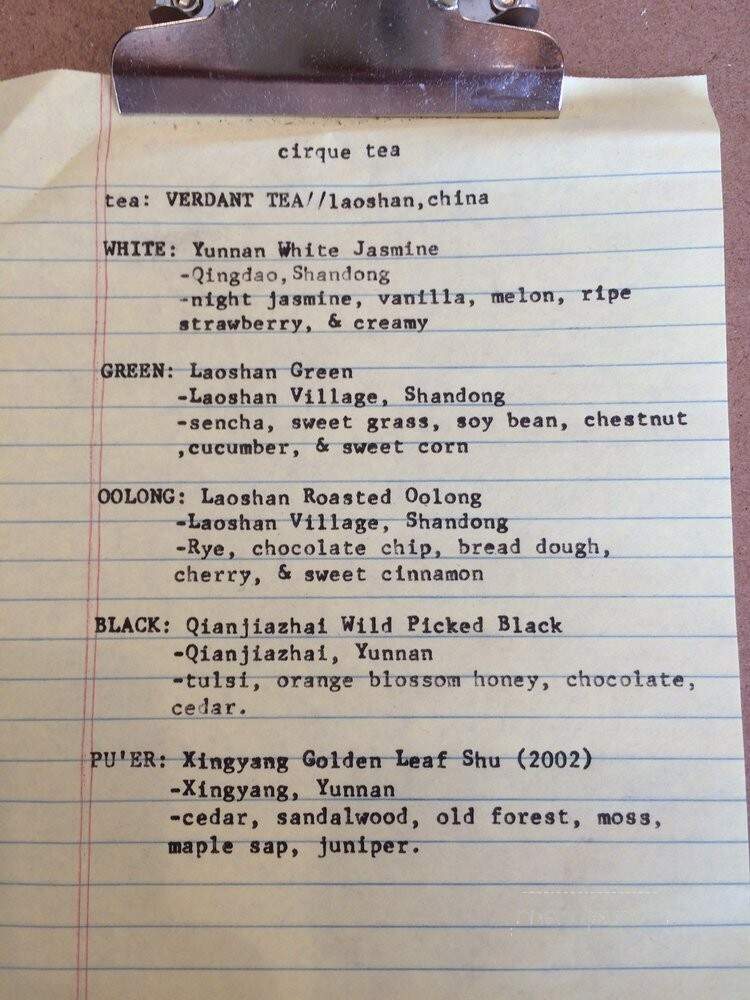 cirque tea
tea: VERDANT TEA//laoshan,china
WHITE: Yunnan White Jasmine
-Qingdao,Shandong
-night jasmine, vanilla, melon, ripe
strawberry, & creamy
GREEN: Laoshan Green
-Laoshan Village, Shandong
-sencha, sweet grass, soy bean, chestnut
,cucumber, & sweet corn
OOLONG: Laoshan Roasted Oolong
-Laoshan Village, Shandong
-Rye, chocolate chip, bread dough,
cherry, & sweet cinnamon
BLACK: Qianjiazhai Wild Picked Black
-Qianjiazhai, Yunnan
-tulsi, orange blossom honey, chocolate,
cedar.
PU'ER: Xingyang Golden Leaf Shu (2002)
-Xingyang, Yunnan
-cedar, sandalwood, old forest, moss,
maple sap, juniper.